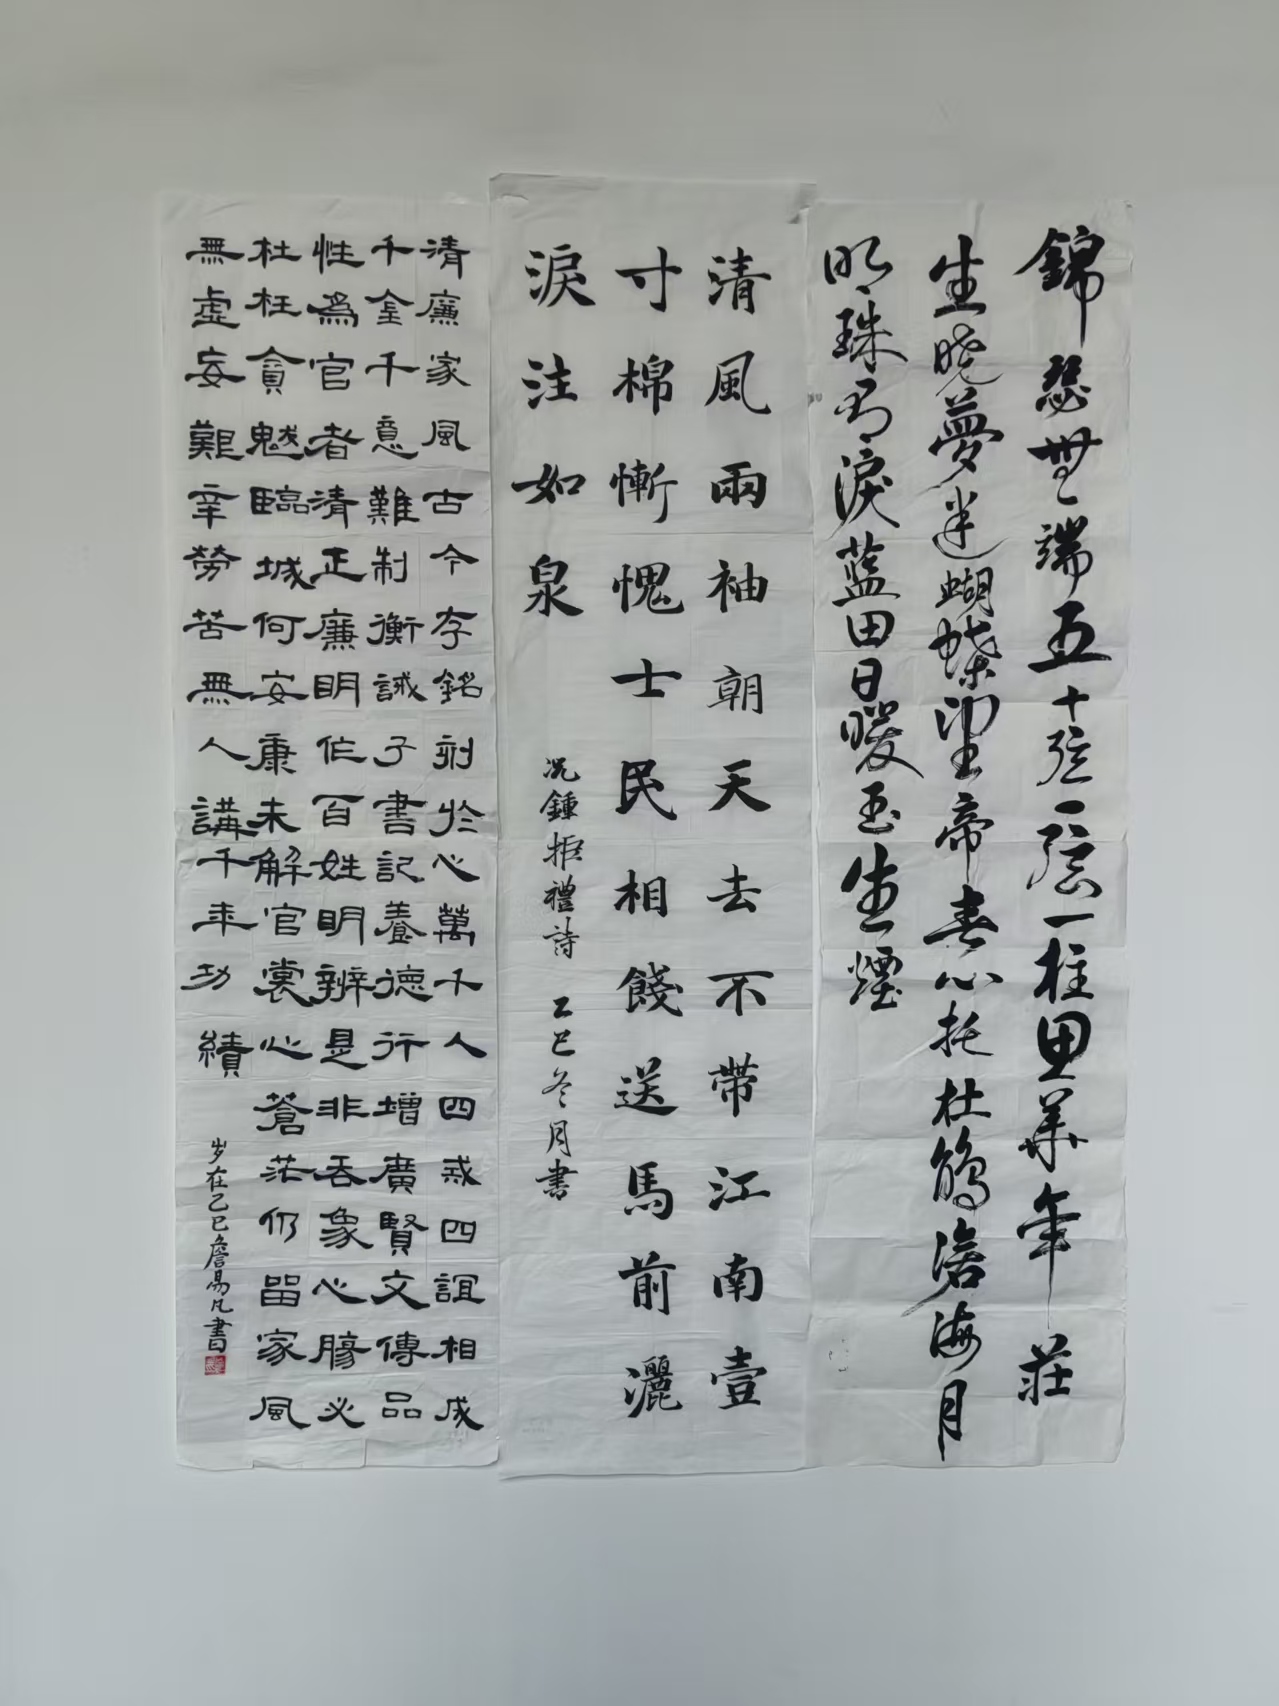 錦瑟無端五十弦一弦一柱思華年莊
生曉夢迷蝴蝶望帝春心托杜鵑滄海月
明珠有淚藍田日暖玉生煙
清風兩袖朝天去不帶江南壹
寸棉慚愧士民相餞送馬前灑
淚注如泉
況鍾拒禮詩 乙巳冬月書
清廉家風古今存銘刻於心萬千人四戒四誼相成
千金千意難制衡誡子書記養德行增廣賢文傳品
性爲官者清正廉明作百姓明辨是非吞象心腸必
杜枉貪魃臨城何安康未解官裳心蒼茫仍留家風
無虛妄艱辛勞苦無人講千年功績
岁在乙巳詹易凡書